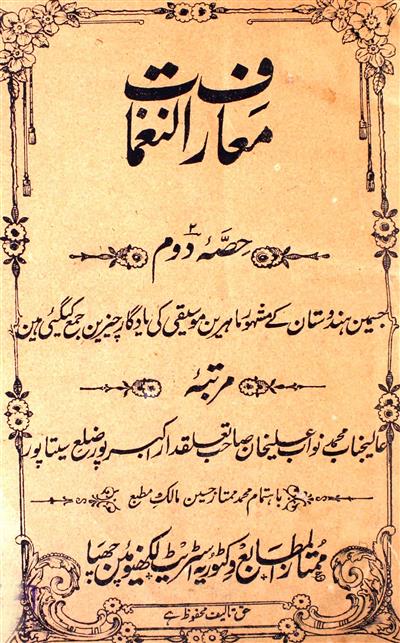 معارف النغمات
حصّۂ دوم ۲
جسمین ہندوستان کے مشہور ماہرین موسیقی کی یادگار چیزین جمع کیگئی ہین
مرتبۂ
عالیجناب محمد نواب علیخان صاحب تعلقدار اکبرپور ضلع سیتاپور
باہتمام محمد ممتاز حسین مالک مطبع
ممتاز المطابع وکٹوریہ اسٹریٹ لکھنؤ مین چھپا
حق تالیف محفوظ ہے